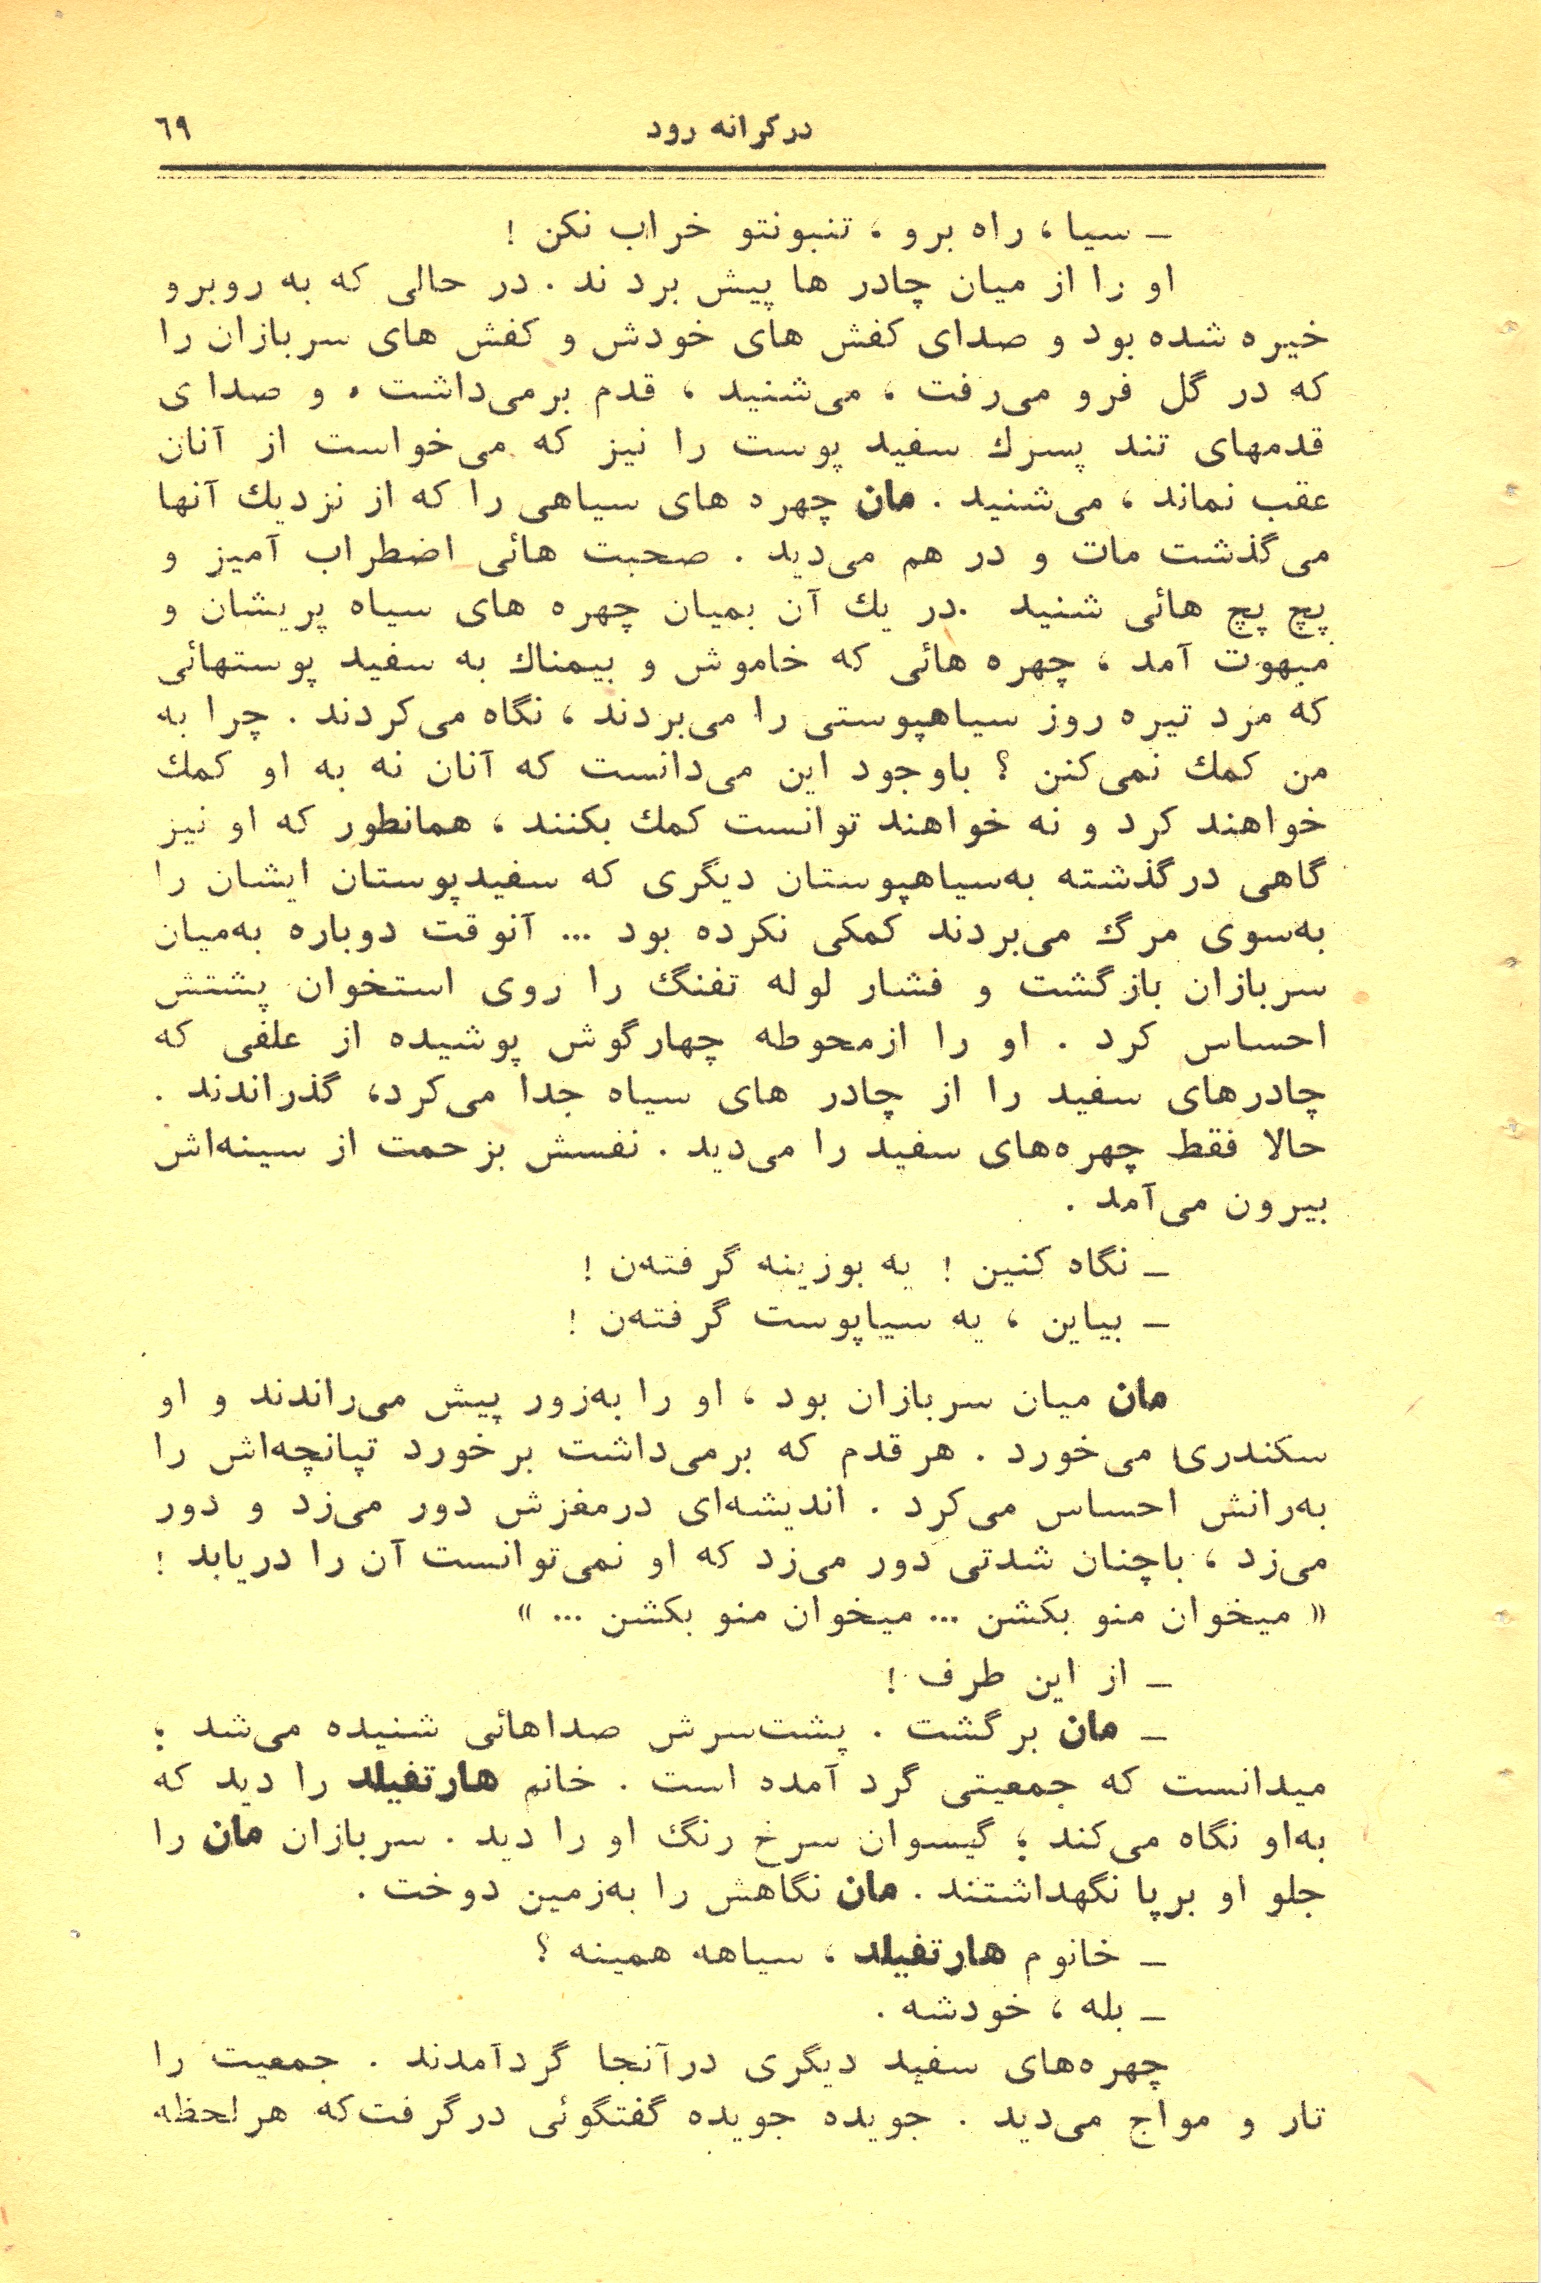 درکرانه رود
٦٩
ـ سیا، راه برو ، تنبونتو خراب نکن !
او را از میان چادر ها پیش برد ند . در حالی که به روبرو
خیره شده بود و صدای کفش های خودش و کفش های سربازان را
که در گل فرو می‌رفت ، می‌شنید ، قدم برمی‌داشت . و صدا ی
قدمهای تند پسرك سفید پوست را نیز که می‌خواست از آنان
عقب نماند ، می‌شنید . مان چهره های سیاهی را که از نزدیك آنها
می‌گذشت مات و در هم می‌دید . صحبت هائی اضطراب آمیز و
پچ پچ هائی شنید .در یك آن بمیان چهره های سیاه پریشان و
مبهوت آمد ، چهره هائی که خاموش و بیمناك به سفید پوستهائی
که مرد تیره روز سیاهپوستی را می‌بردند ، نگاه می‌کردند . چرا به
من کمك نمی‌کنن ؟ باوجود این می‌دانست که آنان نه به او کمك
خواهند کرد و نه خواهند توانست کمك بکنند ، همانطور که او نیز
گاهی درگذشته به‌سیاهپوستان دیگری که سفیدپوستان ایشان را
به‌سوی مرگ می‌بردند کمکی نکرده بود ... آنوقت دوباره به‌میان
سربازان بازگشت و فشار لوله تفنگ را روی استخوان پشتش
احساس کرد . او را ازمحوطه چهارگوش پوشیده از علفی که
چادرهای سفید را از چادر های سیاه جدا می‌کرد، گذراندند .
حالا فقط چهره‌های سفید را می‌دید . نفسش بزحمت از سینه‌اش
بیرون می‌آمد .
ـ نگاه کنین ! یه بوزینه گرفته‌ن !
ـ بیاین ، یه سیاپوست گرفته‌ن !
مان میان سربازان بود ، او را به‌زور پیش می‌راندند و او
سکندری می‌خورد . هرقدم که برمی‌داشت برخورد تپانچه‌اش را
به‌رانش احساس می‌کرد . اندیشه‌ای درمغزش دور می‌زد و دور
می‌زد ، باچنان شدتی دور می‌زد که او نمی‌توانست آن را دریابد :
« میخوان منو بکشن ... میخوان منو بکشن ... »
ـ از این طرف !
ـ مان برگشت . پشت‌سرش صداهائی شنیده می‌شد ؛
میدانست که جمعیتی گرد آمده است . خانم هارتفیلد را دید که
به‌او نگاه می‌کند ؛ گیسوان سرخ رنگ او را دید . سربازان مان را
جلو او برپا نگهداشتند . مان نگاهش را به‌زمین دوخت .
ـ خانوم هارتفیلد ، سیاهه همینه ؟
ـ بله ، خودشه .
چهره‌های سفید دیگری درآنجا گردآمدند . جمعیت را
تار و مواج می‌دید . جویده جویده گفتگوئی درگرفت‌که هرلحظه